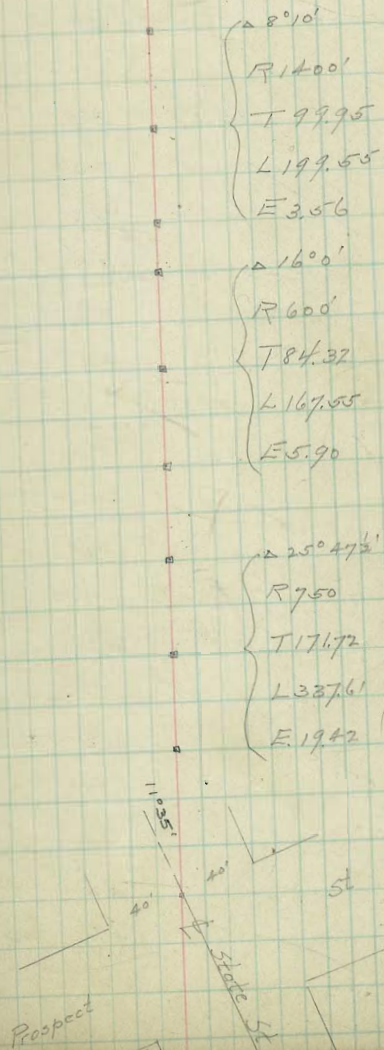 Δ 8°10'
R 1400'
T 99.95
L 199.55
E 3.56
Δ 16°0'
R 600'
T 84.32
L 167.55
E 5.90
Δ 25°47½'
R 750
T 171.72
L 337.61
E. 19.42
11°35'
40'
40'
St
State St
Prospect